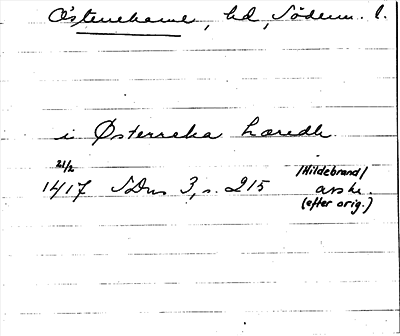 Österrekarne, hd, Söderm. l.
i Østerreka hæredh
21/2 /Hildebrand/
1417 SDns 3, s. 215 avskr.
(efter orig.)